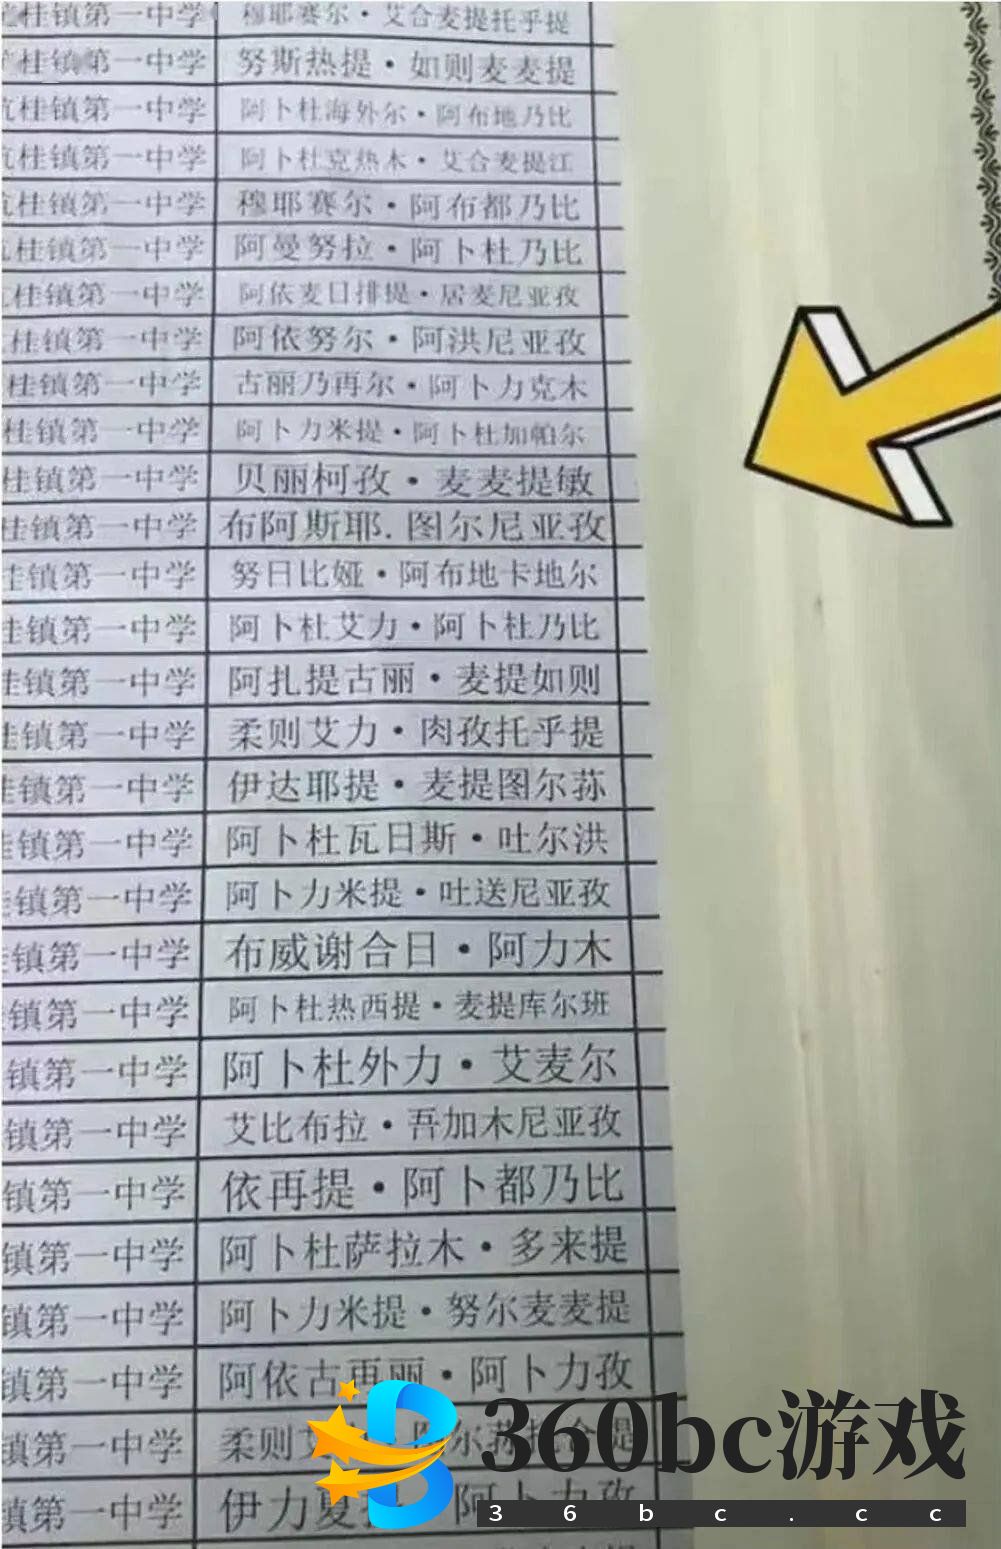 桂镇第一中学 穆耶赛尔·艾合麦提托乎提
桂镇第一中学 努斯热提·如则麦麦提
坑桂镇第一中学 阿卜杜海外尔·阿布地乃比
坑桂镇第一中学 阿卜杜克热木·艾合麦提江
坑桂镇第一中学 穆耶赛尔·阿布都乃比
桂镇第一中学 阿曼努拉·阿卜杜乃比
桂镇第一中学 阿依麦日排提·居麦尼亚孜
桂镇第一中学 阿依努尔·阿洪尼亚孜
桂镇第一中学 古丽乃再尔·阿卜力克木
桂镇第一中学 阿卜力米提·阿卜杜加帕尔
桂镇第一中学 贝丽柯孜·麦麦提敏
桂镇第一中学 布阿斯耶.图尔尼亚孜
桂镇第一中学 努日比娅·阿布地卡地尔
桂镇第一中学 阿卜杜艾力·阿卜杜乃比
桂镇第一中学 阿扎提古丽·麦提如则
桂镇第一中学 柔则艾力·肉孜托乎提
桂镇第一中学 伊达耶提·麦提图尔荪
桂镇第一中学 阿卜杜瓦日斯·吐尔洪
镇第一中学 阿卜力米提·吐送尼亚孜
镇第一中学 布威谢合日·阿力木
镇第一中学 阿卜杜热西提·麦提库尔班
镇第一中学 阿卜杜外力·艾麦尔
镇第一中学 艾比布拉·吾加木尼亚孜
镇第一中学 依再提·阿卜都乃比
镇第一中学 阿卜杜萨拉木·多来提
镇第一中学 阿卜力米提·努尔麦麦提
镇第一中学 阿依古再丽·阿卜力孜
镇第一中学 柔则艾
镇第一中学 伊力夏 阿卜力孜
360bc游戏
36bc.cc